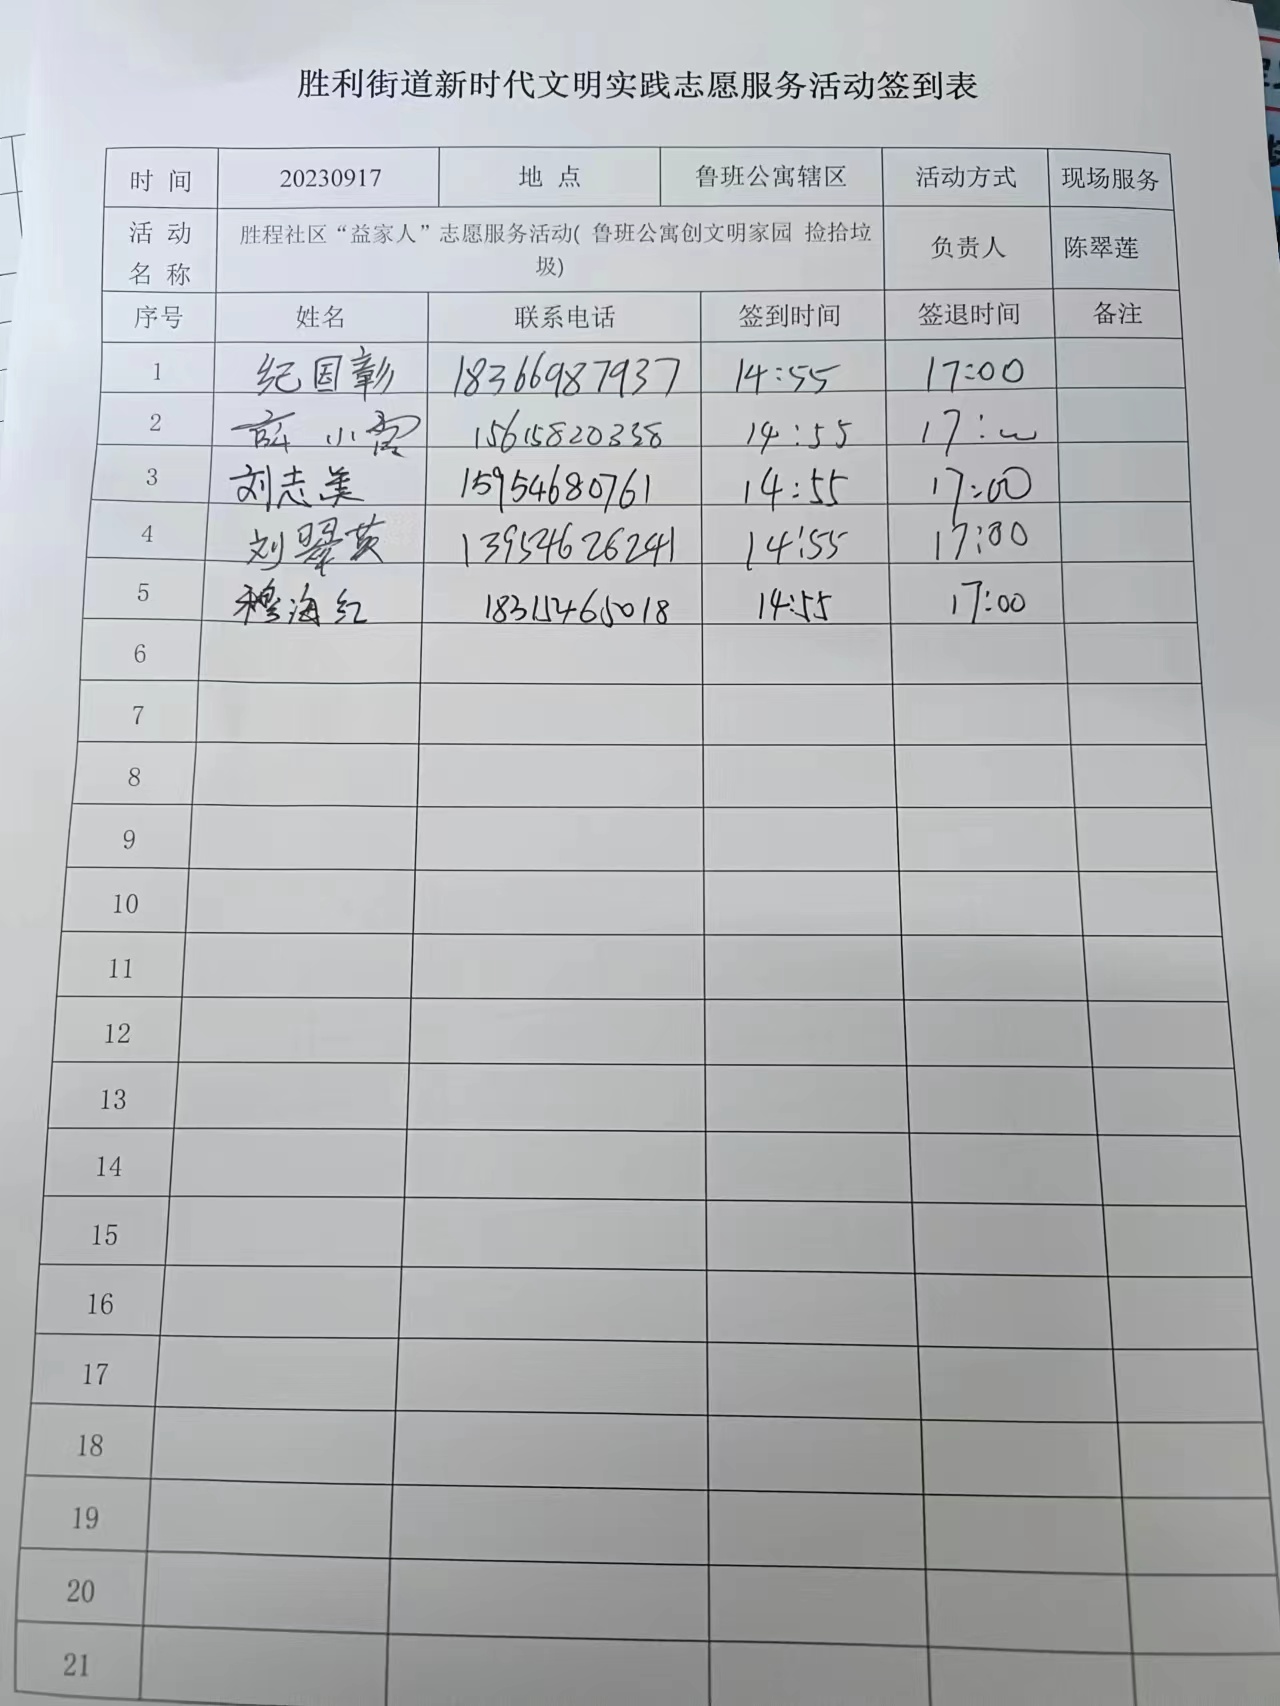 胜利街道新时代文明实践志愿服务活动签到表
时 间 20230917 地 点 鲁班公寓辖区 活动方式 现场服务
活 动 名 称 胜程社区“益家人”志愿服务活动( 鲁班公寓创文明家园 捡拾垃圾) 负责人 陈翠莲
序号 姓名 联系电话 签到时间 签退时间 备注
1 纪国彰 18366987937 14:55 17:00
2 薛小霞 15615820338 14:55 17:
3 刘志美 15954680761 14:55 17:00
4 刘翠英 13954626241 14:55 17:00
5 穆海红 18315465018 14:55 17:00
6
7
8
9
10
11
12
13
14
15
16
17
18
19
20
21